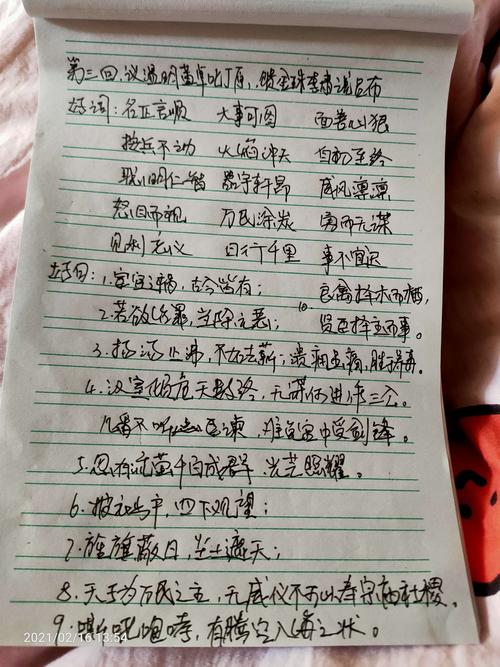 第三回 议温明董卓叱丁原,馈金珠李肃说吕布
好词:名正言顺 大事可图 面善心狠
按兵不动 火焰冲天 自初至终
聪明仁智 器宇轩昂 威风凛凛
怒目而视 万民涂炭 勇而无谋
见利忘义 日行千里 事不宜迟
好句:1.宦官之祸,古今皆有;
10. 良禽择木而栖,
2.若欲治罪,当除元恶;
贤臣择主而事。
3.扬汤止沸,不如去薪;溃痈虽痛,胜于养毒。
4.汉室倾危天数终,无谋何进作三公。
几番不听忠臣谏,难免宫中受剑锋。
5.忽有流萤千百成群,光芒照耀。
6.披衣而起,四下观望;
7.旌旗蔽日,尘土遮天;
8.天子为万民之主,无威仪不可以奉宗庙社稷。
9.嘶喊咆哮,有腾空入海之状。
2021/02/16 13:54